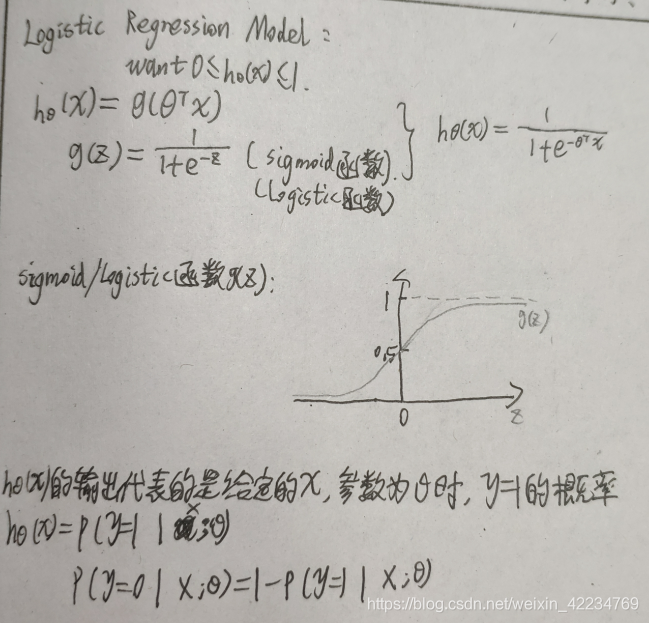 Logistic Regression Model:
want 0≤hθ(x)≤1.
hθ(x)= g(θᵀx)
g(z)= 1/(1+e^-z) (sigmoid函数).
(Logistic函数)
} hθ(x)= 1/(1+e^-θᵀx)
sigmoid/Logistic函数g(z):
1
g(z)
0.5
0
z
hθ(x)的输出代表的是给定的x,参数为θ时,y=1的概率
hθ(x)=P(y=1 | x;θ)
P(y=0 | x;θ)=1-P(y=1 | x;θ)
https://blog.csdn.net/weixin_42234769